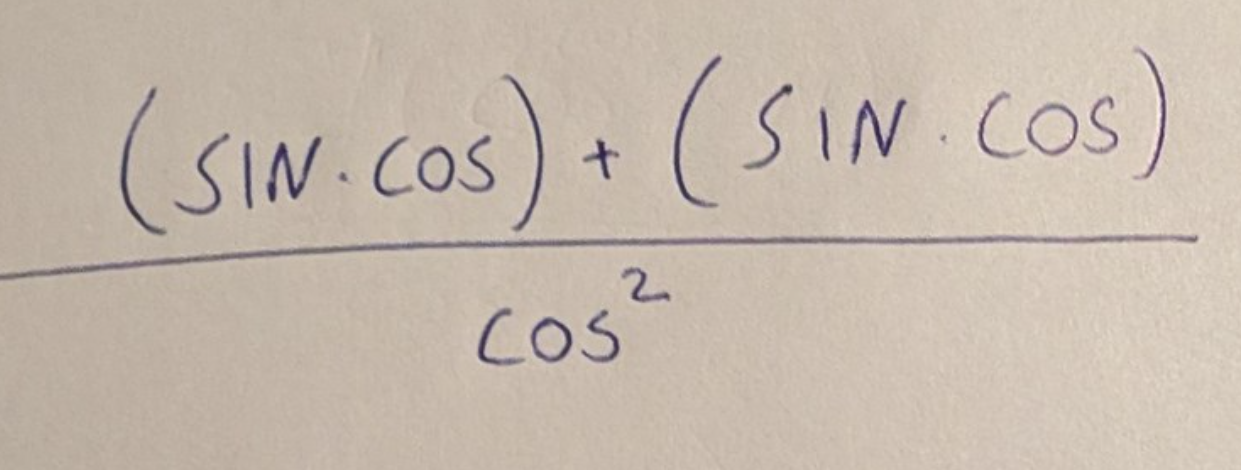 (SIN·COS) + (SIN·COS)
COS²